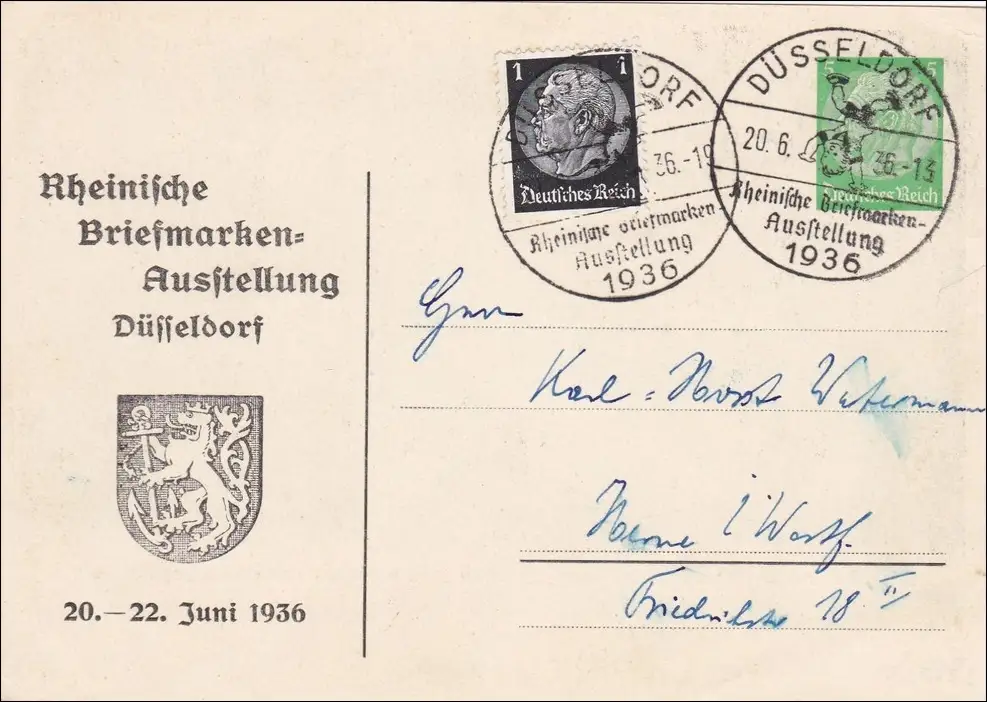 Rheinische
Briefmarken=
Ausstellung
Düsseldorf
20.—22. Juni 1936
1 1
Deutsches Reich
DÜSSELDORF
36.-19
Rheinische Briefmarken-
Ausstellung
1936
5 5
Deutsches Reich
DÜSSELDORF
20.6. 36.-13
Rheinische Briefmarken-
Ausstellung
1936
Herrn
Karl = Horst Watermann
Herne i/Westf.
18 II